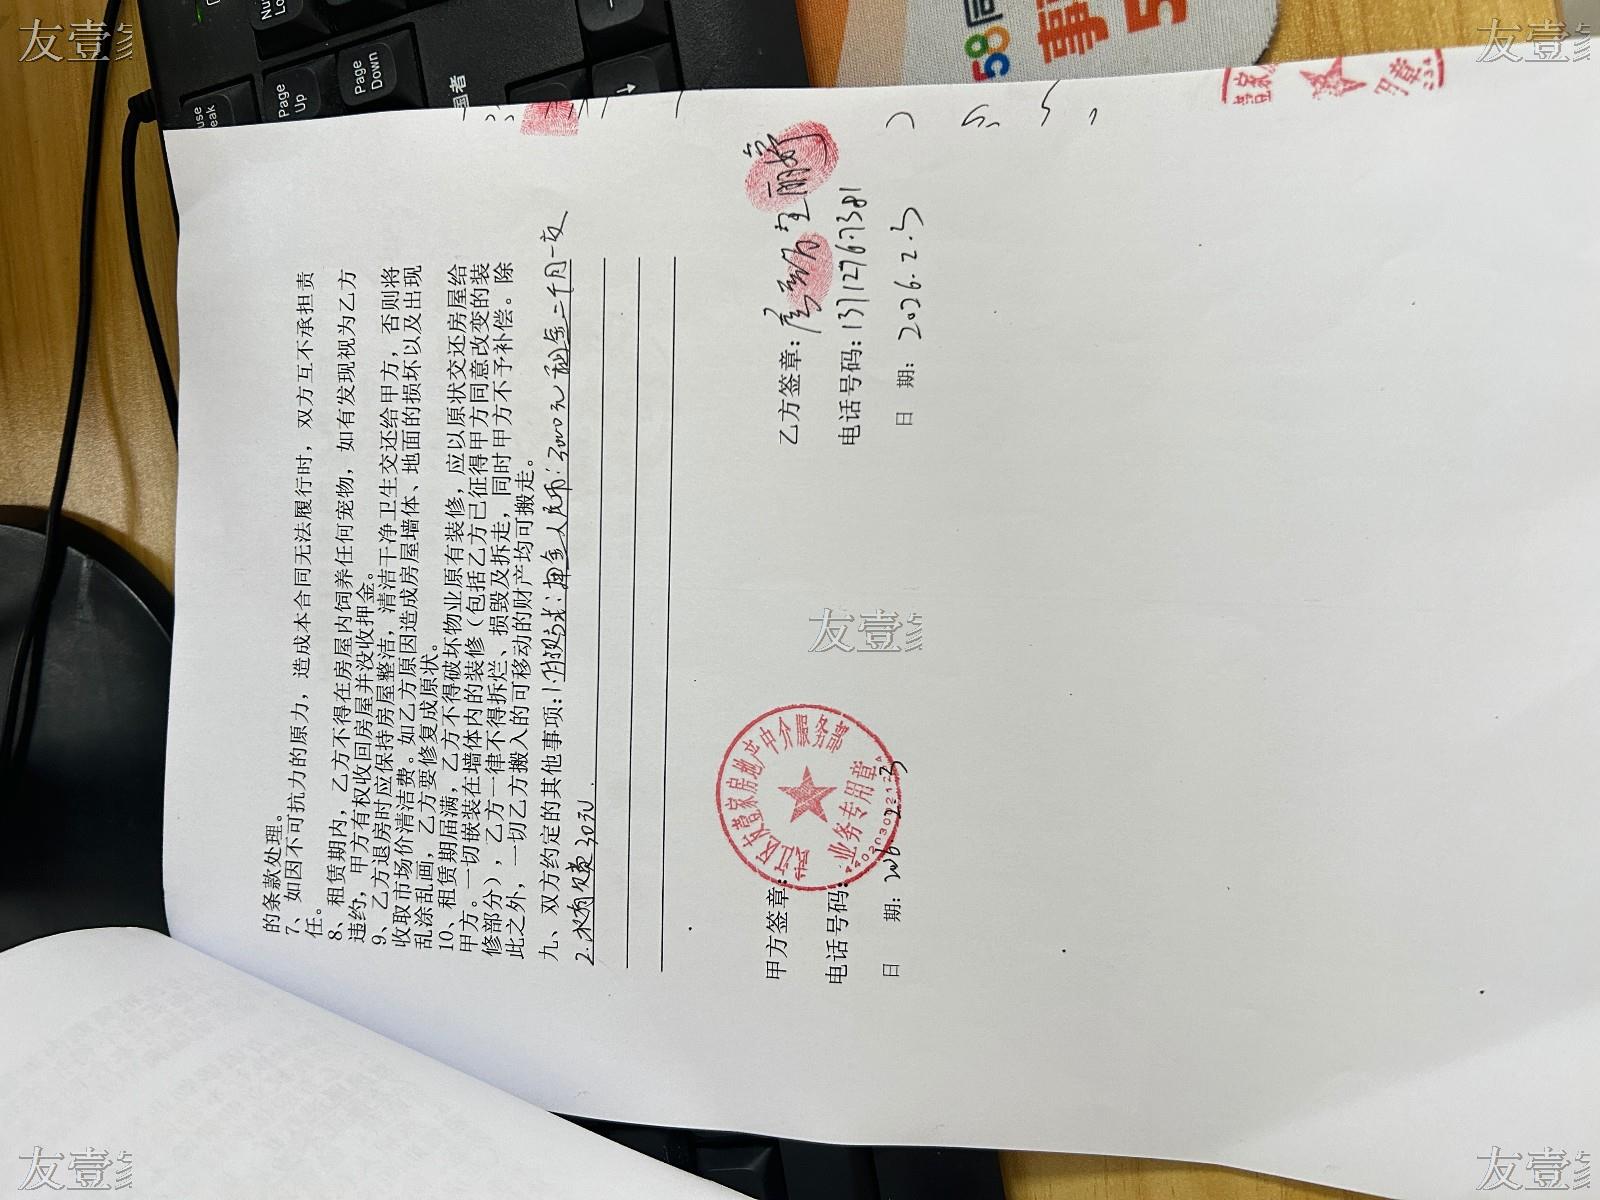 的条款处理。
7、如因不可抗力的原力，造成本合同无法履行时，双方互不承担责
任。
8、租赁期内，乙方不得在房屋内饲养任何宠物，如有发现视为乙方
违约，甲方有权收回房屋并没收押金。
9、乙方退房时应保持房屋整洁，清洁干净卫生交还给甲方，否则将
收取市场价清洁费。如乙方原因造成房屋墙体、地面的损坏以及出现
乱涂乱画，乙方要修复成原状。
10、租赁期届满，乙方不得破坏物业原有装修，应以原状交还房屋给
甲方。一切嵌装在墙体内的装修（包括乙方已征得甲方同意改变的装
修部分），乙方一律不得拆烂、损毁及拆走，同时甲方不予补偿。除
此之外，一切乙方搬入的可移动的财产均可搬走。
九、双方约定的其他事项：1.付款方式：押金人民币：3000元 租金二个月一交
2. 费30元.
甲方签章：
电话号码：
日 期：2026.2.3
乙方签章：
电话号码：13712767381
日 期：2026.2.3
江区友壹家房地产中介服务部
业务专用章
友壹家
友壹家
友壹家
友壹家
友壹家
Page Up
Page Down
58同
事
5